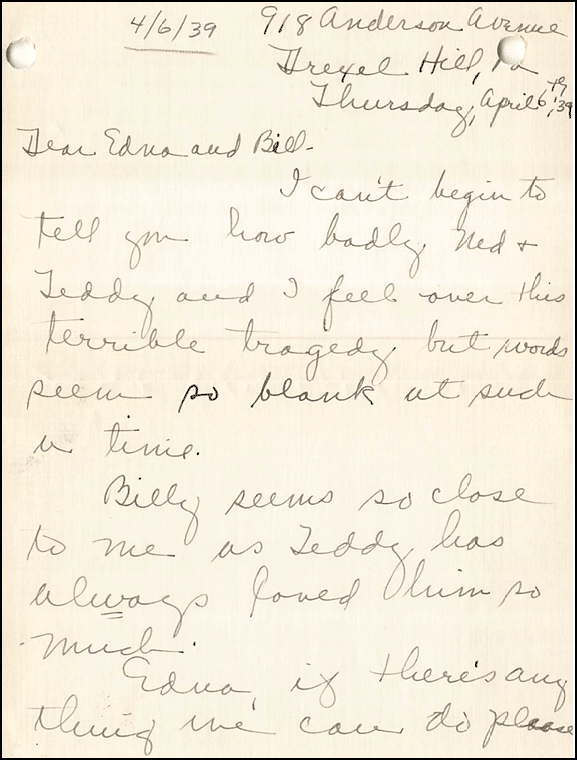 4/6/39
918 Anderson Avenue
Drexel Hill, Pa
Thursday, April 6th, '39
Dear Edna and Bill-
I can't begin to
tell you how badly Ned +
Teddy and I feel over this
terrible tragedy but words
seem so blank at such
a time.
Billy seems so close
to me as Teddy has
always loved him so
much.
Edna, if there's any
thing we can do please